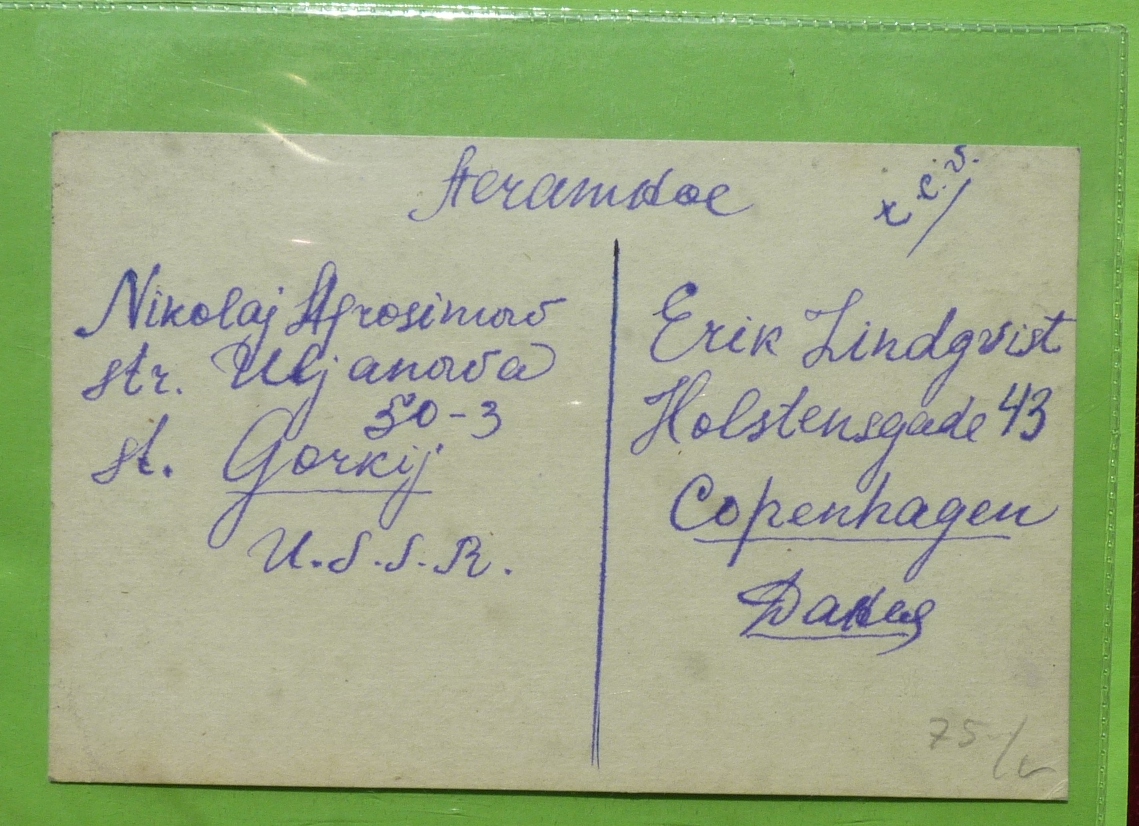 Nikolaj Afrosimov
str. Uljanova
50-3
st. Gorkij
U.S.S.R.
Erik Lindqvist
Holstensgade 43
Copenhagen
Дания
75-/